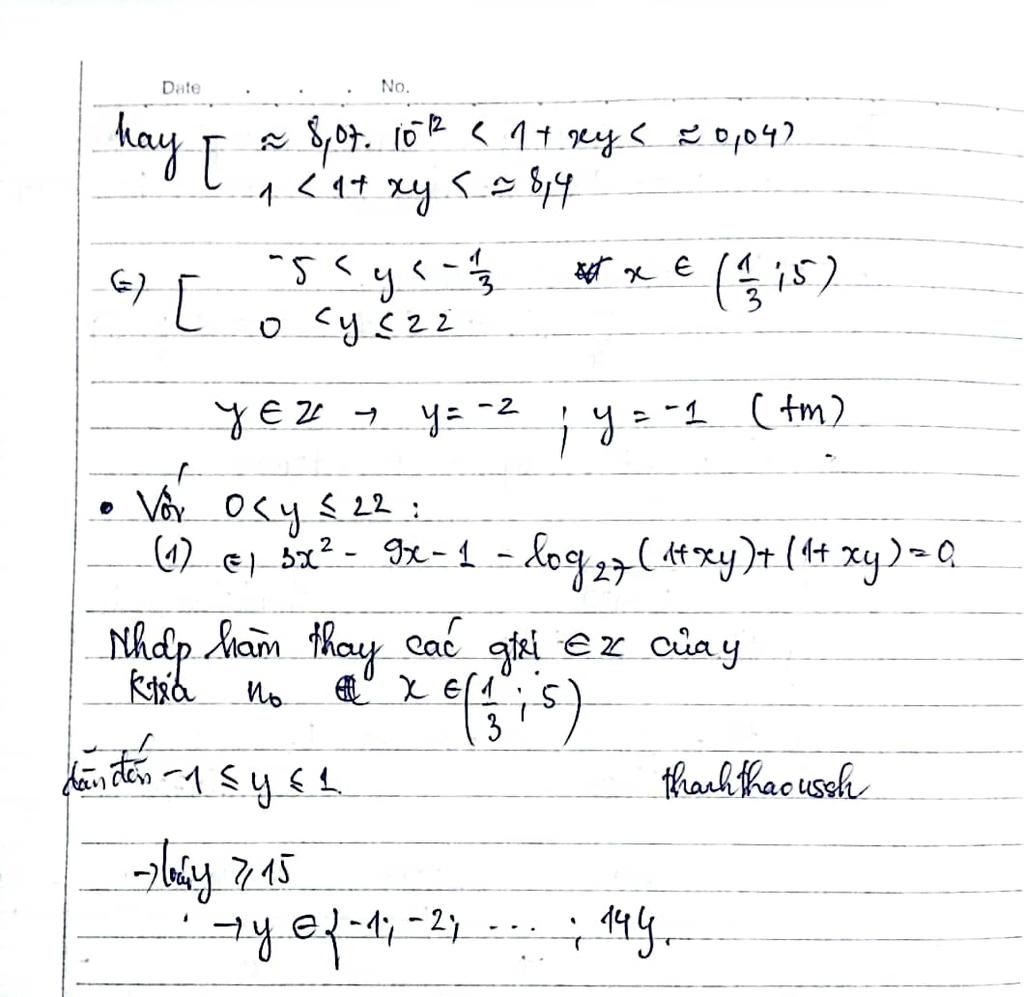 Date . . . No.
hay [ ≈ 8,07. 10⁻¹² < 1 + xy < ≈ 0,047
1 < 1 + xy < ≈ 8,4
(=) [ -5 < y < -1/3 x ∈ (1/3 ; 5)
0 < y ≤ 22
y ∈ Z → y = -2 ; y = -1 (tm)
• Với 0 < y ≤ 22 :
(1) (=) 3x² - 9x - 1 - log₂₇(1+xy) + (1+xy) = 0
Nhập hàm thay các gtri ∈ Z của y
Ktra no x ∈ (1/3 ; 5)
dẫn đến -1 ≤ y ≤ 1
thanhthaoussh
→ loại y ≥ 15
→ y ∈ {-1; -2; ... ; 14}.